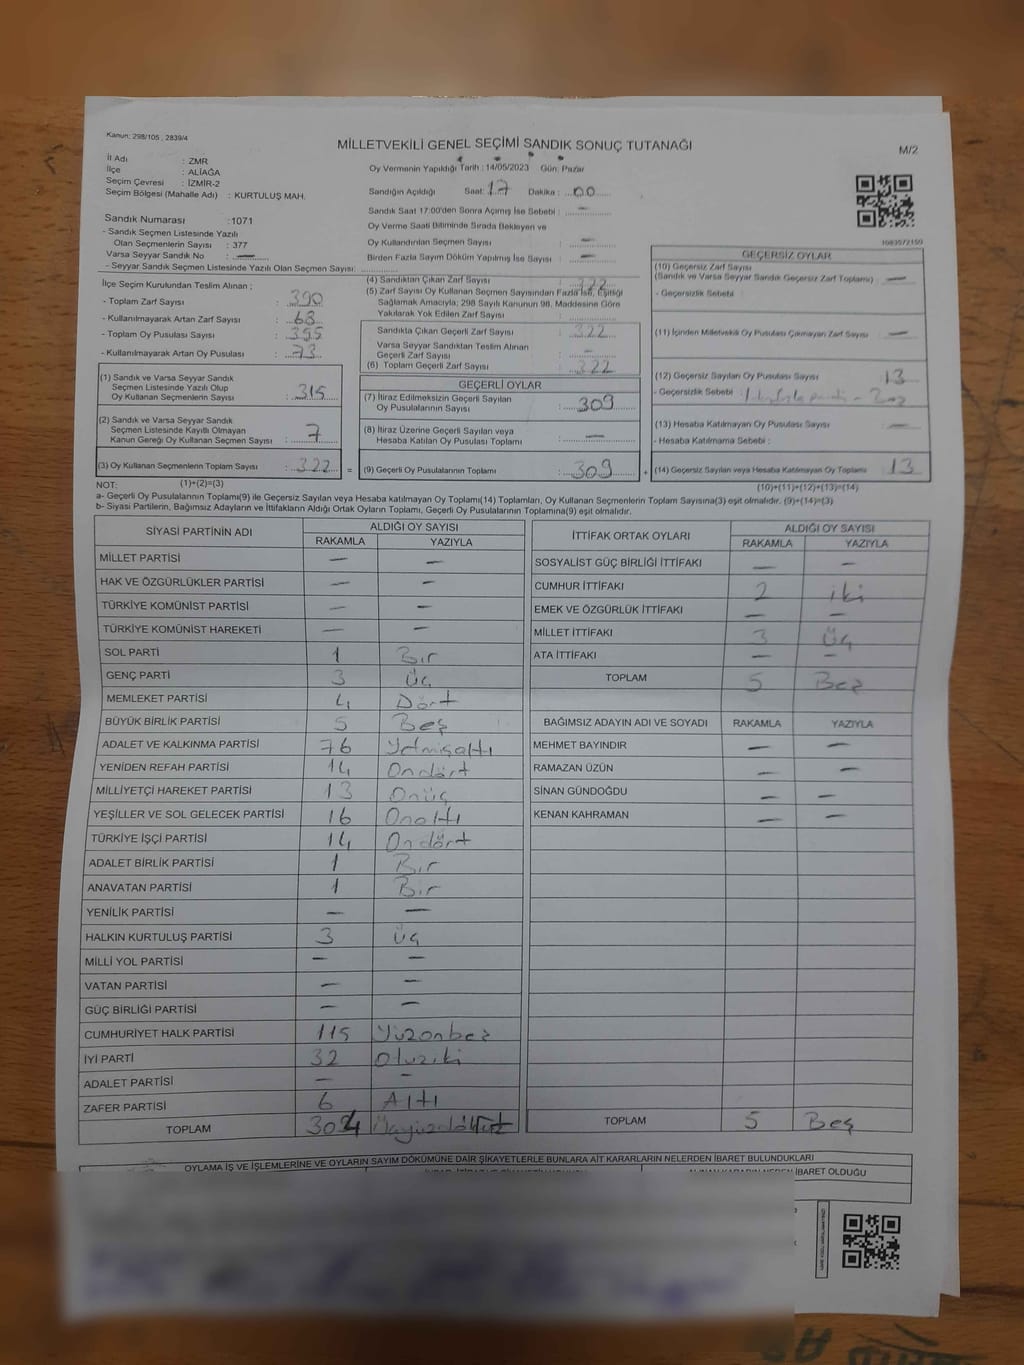 Kanun: 298/105 , 2839/4
MİLLETVEKİLİ GENEL SEÇİMİ SANDIK SONUÇ TUTANAĞI
M/2
İl Adı : ZMR
İlçe : ALİAĞA
Seçim Çevresi : İZMİR-2
Seçim Bölgesi (Mahalle Adı) : KURTULUŞ MAH.
Sandık Numarası :1071
- Sandık Seçmen Listesinde Yazılı
Olan Seçmenlerin Sayısı : 377
Varsa Seyyar Sandık No : —
- Seyyar Sandık Seçmen Listesinde Yazılı Olan Seçmen Sayısı:
Oy Vermenin Yapıldığı Tarih : 14/05/2023 Gün: Pazar
Sandığın Açıldığı Saat: 17 Dakika : 00
Sandık Saat 17:00'den Sonra Açımış İse Sebebi : —
Oy Verme Saati Bitiminde Sırada Bekleyen ve
Oy Kullandırılan Seçmen Sayısı : —
Birden Fazla Sayım Döküm Yapılmış İse Sayısı : —
İlçe Seçim Kurulundan Teslim Alınan :
- Toplam Zarf Sayısı : 390
- Kullanılmayarak Artan Zarf Sayısı : 68
- Toplam Oy Pusulası Sayısı : 395
- Kullanılmayarak Artan Oy Pusulası : 73
(1) Sandık ve Varsa Seyyar Sandık
Seçmen Listesinde Yazılı Olup
Oy Kullanan Seçmenlerin Sayısı : 315
(2) Sandık ve Varsa Seyyar Sandık
Seçmen Listesinde Kayıtlı Olmayan
Kanun Gereği Oy Kullanan Seçmen Sayısı : 7
(3) Oy Kullanan Seçmenlerin Toplam Sayısı : 322 =
(4) Sandıktan Çıkan Zarf Sayısı : 322
(5) Zarf Sayısı Oy Kullanan Seçmen Sayısından Fazla İse, Eşitliği
Sağlamak Amacıyla; 298 Sayılı Kanunun 98. Maddesine Göre
Yakılarak Yok Edilen Zarf Sayısı :
Sandıkta Çıkan Geçerli Zarf Sayısı : 322
Varsa Seyyar Sandıktan Teslim Alınan
Geçerli Zarf Sayısı : —
(6) Toplam Geçerli Zarf Sayısı : 322
GEÇERLİ OYLAR
(7) İtiraz Edilmeksizin Geçerli Sayılan
Oy Pusulalarının Sayısı : 309
(8) İtiraz Üzerine Geçerli Sayılan veya
Hesaba Katılan Oy Pusulası Toplamı : —
(9) Geçerli Oy Pusulalarının Toplamı : 309 +
GEÇERSİZ OYLAR
(10) Geçersiz Zarf Sayısı
(Sandık ve Varsa Seyyar Sandık Geçersiz Zarf Toplamı) : —
- Geçersizlik Sebebi :
(11) İçinden Milletvekili Oy Pusulası Çıkmayan Zarf Sayısı : —
(12) Geçersiz Sayılan Oy Pusulası Sayısı : 13
- Geçersizlik Sebebi :
(13) Hesaba Katılmayan Oy Pusulası Sayısı : —
- Hesaba Katılmama Sebebi :
(14) Geçersiz Sayılan veya Hesaba Katılmayan Oy Toplamı : 13
NOT: (1)+(2)=(3)
(10)+(11)+(12)+(13)=(14)
a- Geçerli Oy Pusulalarının Toplamı(9) ile Geçersiz Sayılan veya Hesaba katılmayan Oy Toplamı(14) Toplamları, Oy Kullanan Seçmenlerin Toplam Sayısına(3) eşit olmalıdır. (9)+(14)=(3)
b- Siyasi Partilerin, Bağımsız Adayların ve İttifakların Aldığı Ortak Oyların Toplamı, Geçerli Oy Pusulalarının Toplamına(9) eşit olmalıdır.
SİYASİ PARTİNİN ADI ALDIĞI OY SAYISI
RAKAMLA YAZIYLA
MİLLET PARTİSİ — —
HAK VE ÖZGÜRLÜKLER PARTİSİ — —
TÜRKİYE KOMÜNİST PARTİSİ — —
TÜRKİYE KOMÜNİST HAREKETİ — —
SOL PARTİ 1 Bir
GENÇ PARTİ 3 Üç
MEMLEKET PARTİSİ 4 Dört
BÜYÜK BİRLİK PARTİSİ 5 Beş
ADALET VE KALKINMA PARTİSİ 76 Yetmişaltı
YENİDEN REFAH PARTİSİ 14 Ondört
MİLLİYETÇİ HAREKET PARTİSİ 13 Onüç
YEŞİLLER VE SOL GELECEK PARTİSİ 16 Onaltı
TÜRKİYE İŞÇİ PARTİSİ 14 Ondört
ADALET BİRLİK PARTİSİ 1 Bir
ANAVATAN PARTİSİ 1 Bir
YENİLİK PARTİSİ — —
HALKIN KURTULUŞ PARTİSİ 3 Üç
MİLLİ YOL PARTİSİ — —
VATAN PARTİSİ — —
GÜÇ BİRLİĞİ PARTİSİ — —
CUMHURİYET HALK PARTİSİ 115 Yüzonbeş
İYİ PARTİ 32 Otuziki
ADALET PARTİSİ — —
ZAFER PARTİSİ 6 Altı
TOPLAM 304 Üçyüzdört
İTTİFAK ORTAK OYLARI ALDIĞI OY SAYISI
RAKAMLA YAZIYLA
SOSYALİST GÜÇ BİRLİĞİ İTTİFAKI — —
CUMHUR İTTİFAKI 2 iki
EMEK VE ÖZGÜRLÜK İTTİFAKI — —
MİLLET İTTİFAKI 3 Üç
ATA İTTİFAKI — —
TOPLAM 5 Beş
BAĞIMSIZ ADAYIN ADI VE SOYADI RAKAMLA YAZIYLA
MEHMET BAYINDIR — —
RAMAZAN ÜZÜN — —
SİNAN GÜNDOĞDU — —
KENAN KAHRAMAN — —
TOPLAM 5 Beş
OYLAMA İŞ VE İŞLEMLERİNE VE OYLARIN SAYIM DÖKÜMÜNE DAİR ŞİKAYETLERLE BUNLARA AİT KARARLARIN NELERDEN İBARET BULUNDUKLARI
İBARET OLDUĞU